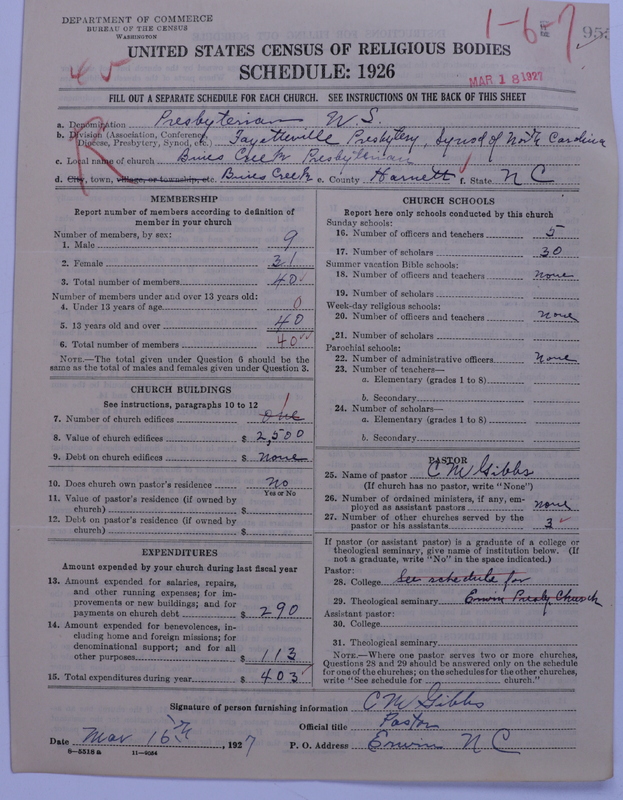 DEPARTMENT OF COMMERCE
BUREAU OF THE CENSUS
WASHINGTON
1-6-7
953
UNITED STATES CENSUS OF RELIGIOUS BODIES
SCHEDULE: 1926
45
MAR 18 1927
FILL OUT A SEPARATE SCHEDULE FOR EACH CHURCH. SEE INSTRUCTIONS ON THE BACK OF THIS SHEET
R
a. Denomination Presbyterian U.S.
b. Division (Association, Conference, Diocese, Presbytery, Synod, etc.) Fayetteville Presbytery, Synod of North Carolina
c. Local name of church Buies Creek Presbyterian
d. City, town, village, or township, etc. Buies Creek e. County Harnett f. State N C
MEMBERSHIP
Report number of members according to definition of
member in your church
Number of members, by sex:
1. Male 9
2. Female 31
3. Total number of members 40
Number of members under and over 13 years old:
4. Under 13 years of age 0
5. 13 years old and over 40
6. Total number of members 40
NOTE.—The total given under Question 6 should be the
same as the total of males and females given under Question 3.
CHURCH BUILDINGS
See instructions, paragraphs 10 to 12
7. Number of church edifices One 1
8. Value of church edifices $ 2,500
9. Debt on church edifices $ None
10. Does church own pastor's residence No
Yes or No
11. Value of pastor's residence (if owned by
church) $
12. Debt on pastor's residence (if owned by
church) $
EXPENDITURES
Amount expended by your church during last fiscal year
13. Amount expended for salaries, repairs,
and other running expenses; for im-
provements or new buildings; and for
payments on church debt $ 290
14. Amount expended for benevolences, in-
cluding home and foreign missions; for
denominational support; and for all
other purposes $ 113
15. Total expenditures during year $ 403
CHURCH SCHOOLS
Report here only schools conducted by this church
Sunday schools:
16. Number of officers and teachers 5
17. Number of scholars 30
Summer vacation Bible schools:
18. Number of officers and teachers none
19. Number of scholars
Week-day religious schools:
20. Number of officers and teachers none
21. Number of scholars
Parochial schools:
22. Number of administrative officers none
23. Number of teachers—
a. Elementary (grades 1 to 8)
b. Secondary
24. Number of scholars—
a. Elementary (grades 1 to 8)
b. Secondary
PASTOR
25. Name of pastor C M Gibbs
(If church has no pastor, write "None")
26. Number of ordained ministers, if any, em-
ployed as assistant pastors none
27. Number of other churches served by the
pastor or his assistants 3
If pastor (or assistant pastor) is a graduate of a college or
theological seminary, give name of institution below. (If
not a graduate, write "No" in the space indicated.)
Pastor:
28. College See schedule for
29. Theological seminary Erwin Presby Church
Assistant pastor:
30. College
31. Theological seminary
NOTE.—Where one pastor serves two or more churches,
Questions 28 and 29 should be answered only on the schedule
for one of the churches; on the schedules for the other churches,
write "See schedule for church."
Signature of person furnishing information C M Gibbs
Official title Pastor
Date Mar 16th, 1927 P. O. Address Erwin N C
8-5518 a 11-9084